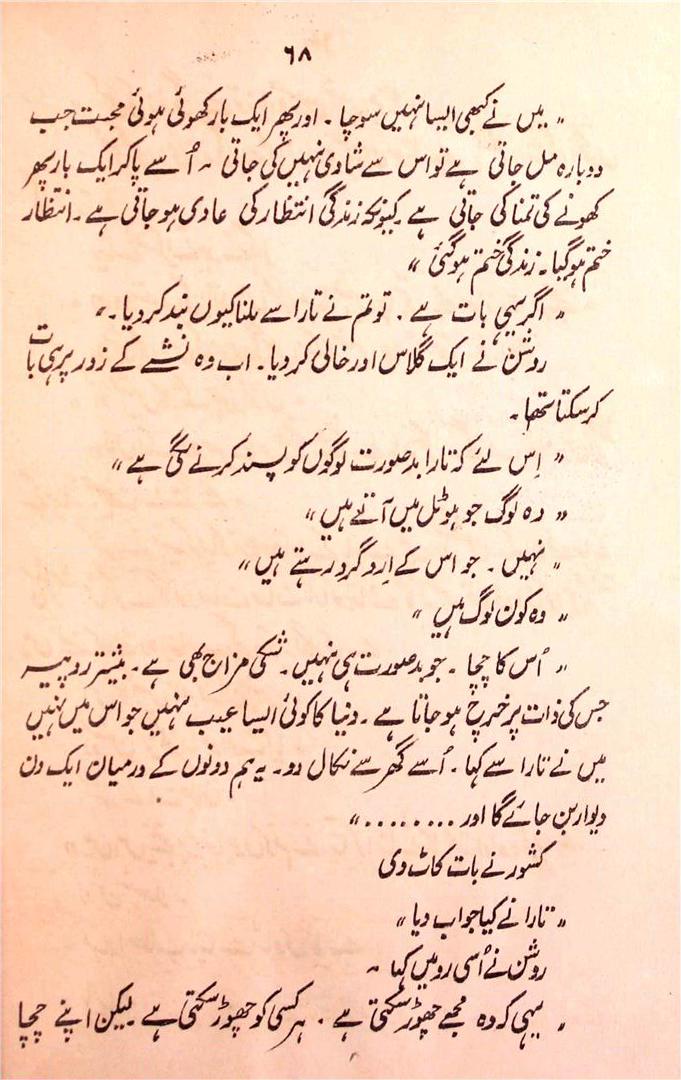 ۶۸
" میں نے کبھی ایسا نہیں سوچا ۔ اور پھر ایک بار کھوئی ہوئی محبت جب
دوبارہ مل جاتی ہے تو اس سے شادی نہیں کی جاتی ۔ اُسے پا کر ایک بار پھر
کھونے کی تمنا کی جاتی ہے ۔ کیونکہ زندگی انتظار کی عادی ہو جاتی ہے ۔ انتظار
ختم ہو گیا ۔ زندگی ختم ہو گئی "
" اگر یہی بات ہے ۔ تو تم نے تارا سے ملنا کیوں بند کر دیا ۔ "
روشن نے ایک گلاس اور خالی کر دیا ۔ اب وہ نشے کے زور پر ہی بات
کر سکتا تھا ۔
" اِس لئے کہ تارا بدصورت لوگوں کو پسند کرنے لگی ہے "
" وہ لوگ جو ہوٹل میں آتے ہیں "
" نہیں ۔ جو اس کے اِرد گرد رہتے ہیں "
" وہ کون لوگ ہیں "
" اُس کا چچا ۔ جو بدصورت ہی نہیں ۔ شکی مزاج بھی ہے ۔ بیشتر روپیہ
جس کی ذات پر خرچ ہو جاتا ہے ۔ دنیا کا کوئی ایسا عیب نہیں جو اس میں نہیں
میں نے تارا سے کہا ۔ اُسے گھر سے نکال دو ۔ یہ ہم دونوں کے درمیان ایک دن
دیوار بن جائے گا اور ........ "
کشور نے بات کاٹ دی
" تارا نے کیا جواب دیا "
روشن نے اُسی رو میں کہا ۔
" یہی کہ وہ مجھے چھوڑ سکتی ہے ۔ ہر کسی کو چھوڑ سکتی ہے لیکن اپنے چچا